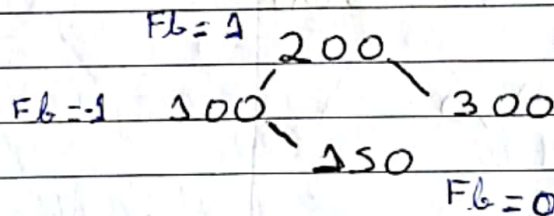 Fb = 1
200
Fb = -1 100 300
150
Fb = 0